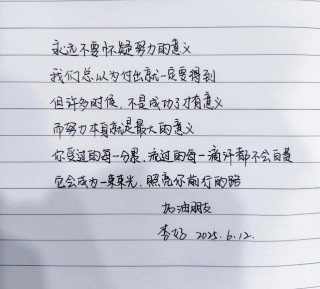 永远不要怀疑努力的意义
我们总以为付出就一定要得到
但许多时候，不是成功了才有意义
而努力本身就是最大的意义
你受过的每一分累，流过的每一滴汗都不会白费
它会成为一束光，照亮你前行的路
加油朋友
李好 2025.6.12.